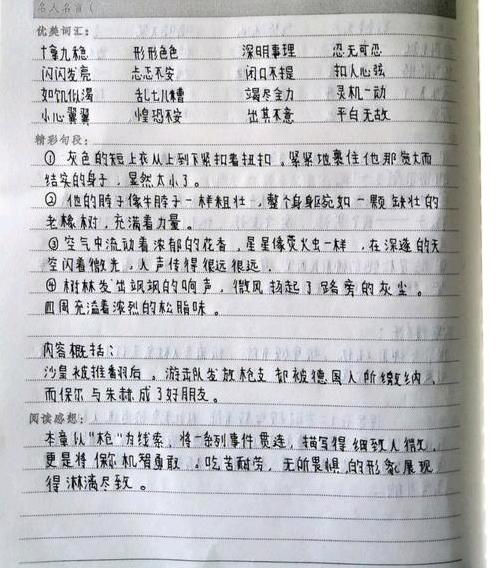 名人名言(
优美词汇:
十拿九稳 形形色色 深明事理 忍无可忍
闪闪发亮 忐忑不安 闭口不提 扣人心弦
如饥似渴 乱七八糟 竭尽全力 灵机一动
小心翼翼 惶恐不安 出其不意 平白无故
精彩句段:
① 灰色的短上衣从上到下紧扣着纽扣。紧紧地裹住他那宽大而
结实的身子,显然太小了。
② 他的脖子像牛脖子一样粗壮,整个身躯宛如一颗缺壮的
老橡树,充满着力量。
③ 空气中流动着浓郁的花香,星星像荧火虫一样,在深邃的天
空闪着微光,人声传得很远很远。
④ 树林发出飒飒的响声,微风扬起了路旁的灰尘。
四周充溢着浓烈的松脂味。
内容概括:
沙皇被推翻后。游击队发放枪支都被德国人所缴纳
而保尔与朱赫成了好朋友。
阅读感想:
本章以“枪”为线索,将一系列事件贯连,描写得细致入微,
更是将保尔机智勇敢。吃苦耐劳,无所畏惧的形象展现
得淋漓尽致。